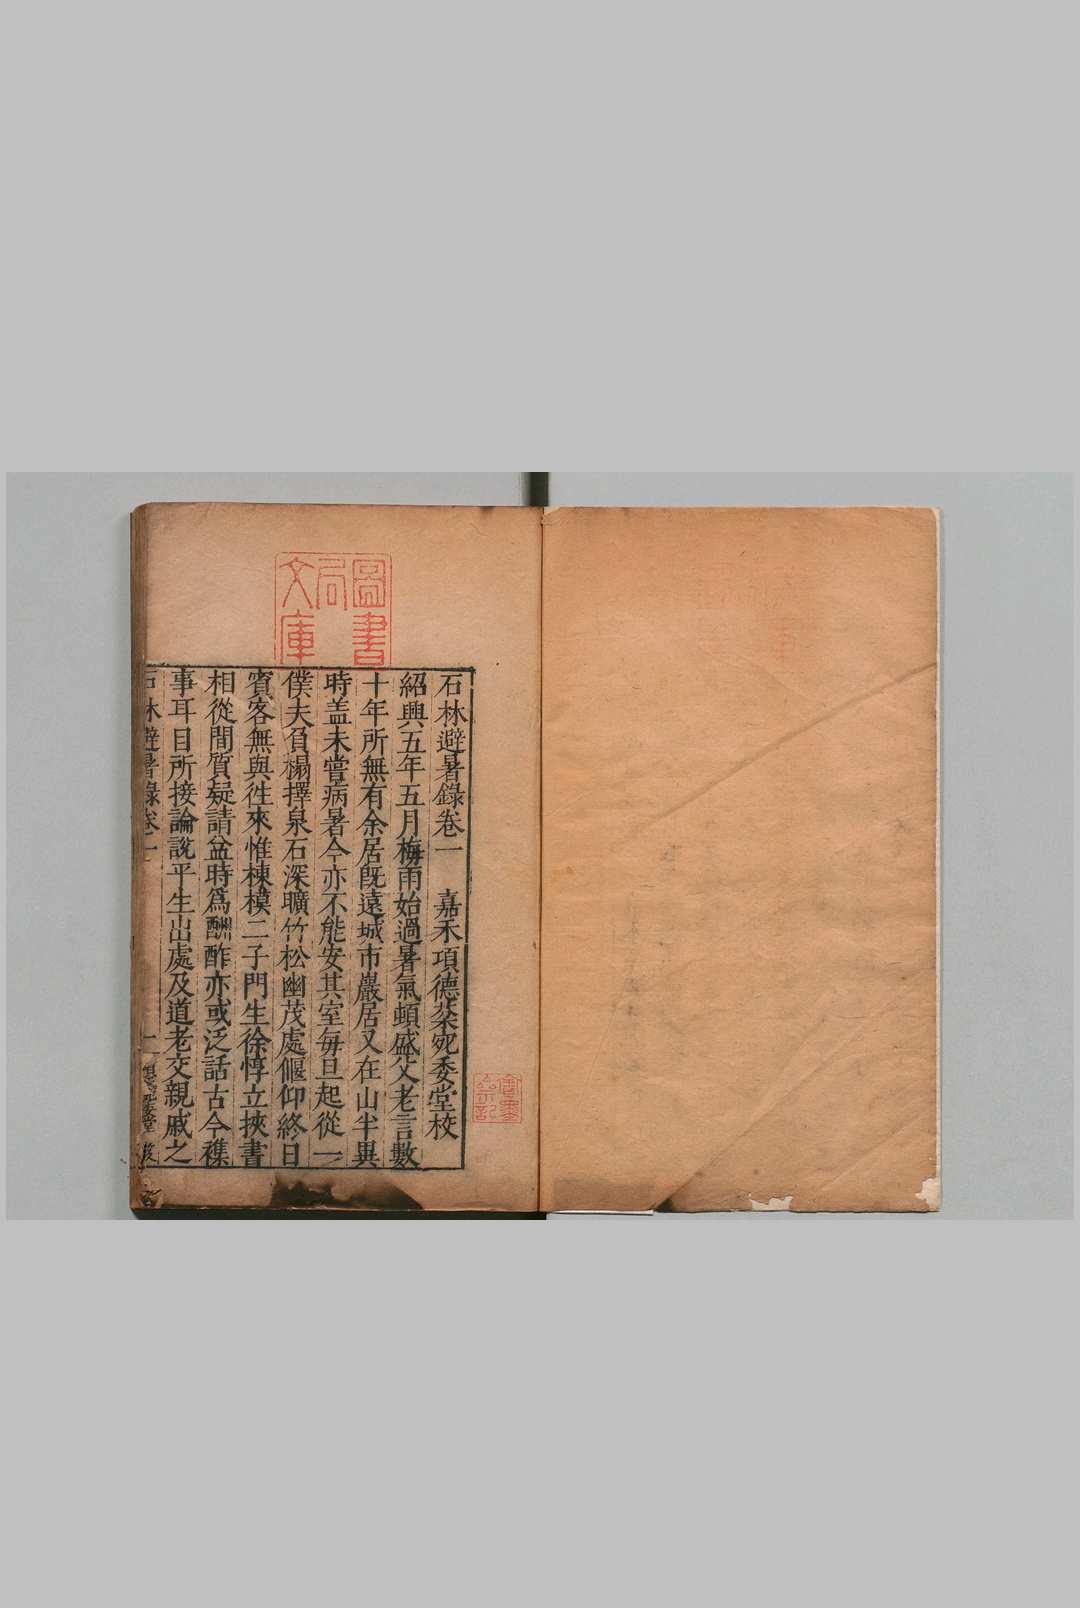 石林避暑錄卷一　嘉禾項德棻宛委堂校
紹興五年五月梅雨始過暑氣頓盛父老言數
十年所無有余居旣遠城市巖居又在山半異
時盖未嘗病暑今亦不能安其室每旦起從一
僕夫負榻擇泉石深曠竹松幽茂處偃仰終日
賓客無與徃來惟棟模二子門生徐惇立挾書
相從間質疑請益時爲酬酢亦或泛話古今襍
事耳目所接論說平生出處及道老交親戚之
石林避暑錄卷一　一　宛委堂校
圖書
局
文庫